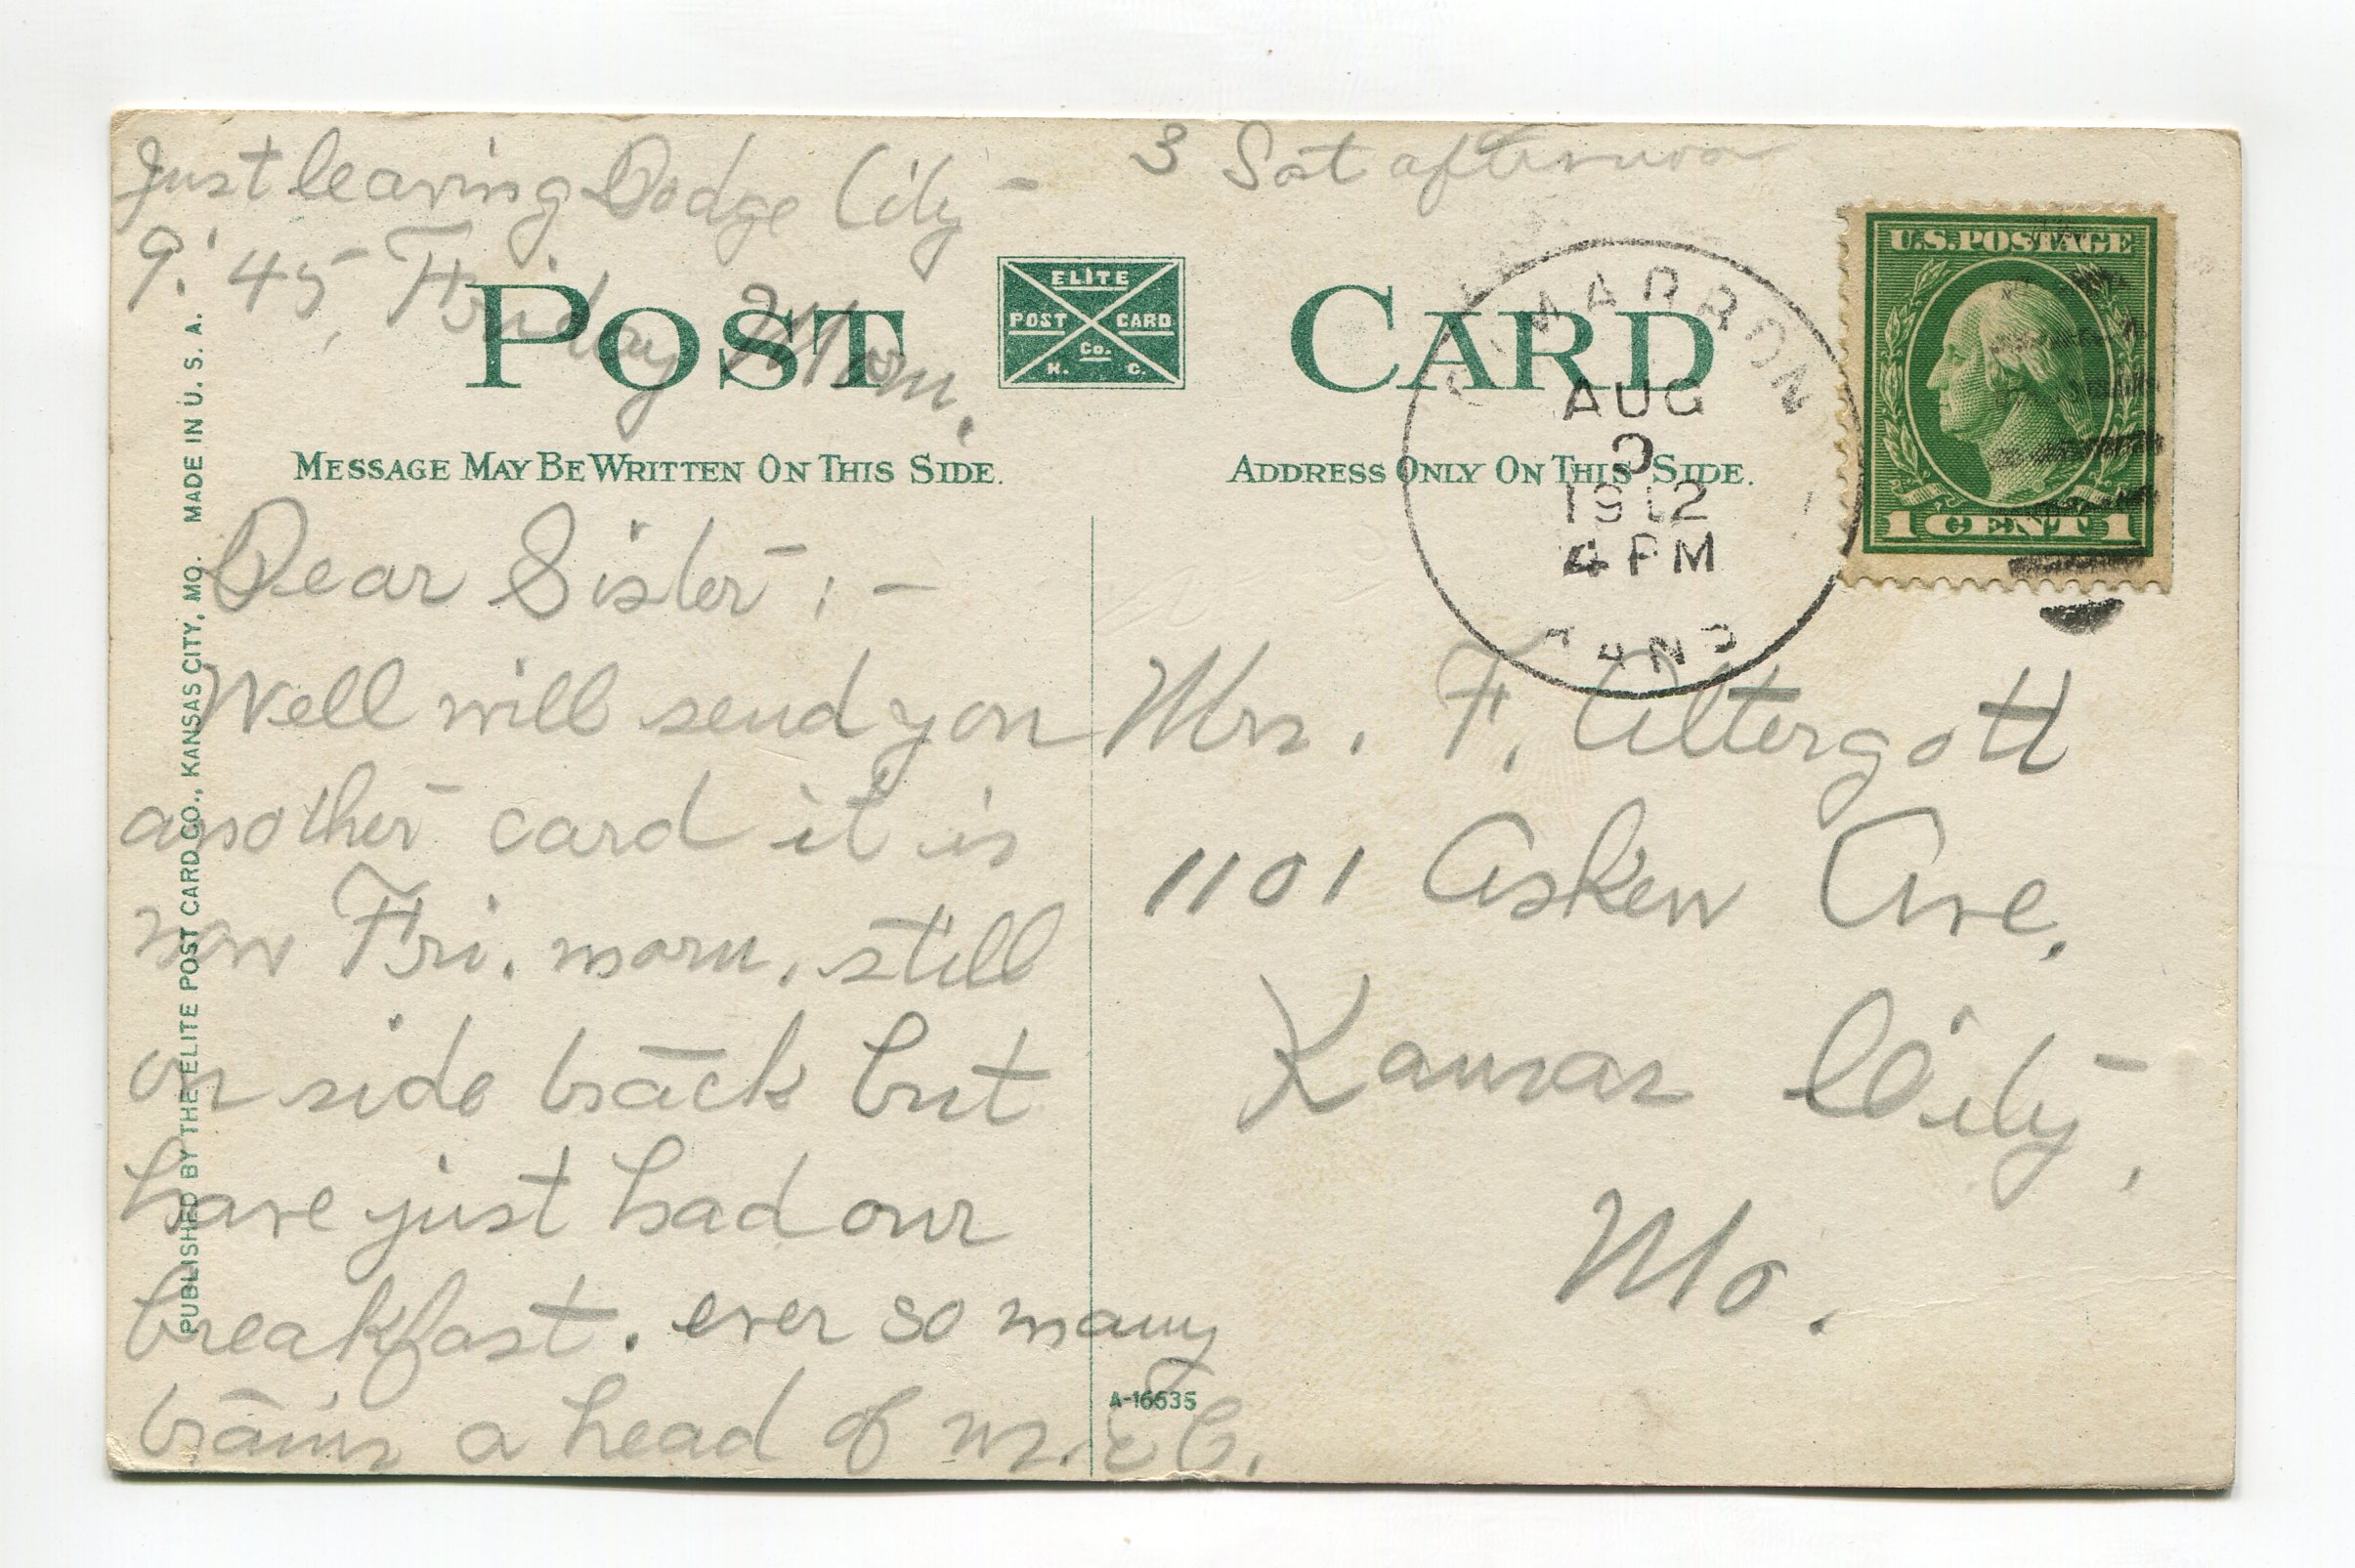 Just leaving Dodge City –
9:45, Friday Morn.
3 Sat afternoon
POST CARD
ELITE
POST CARD
Co.
K. C.
MESSAGE MAY BE WRITTEN ON THIS SIDE.
ADDRESS ONLY ON THIS SIDE.
CIMARRON
AUG
3
1912
4 PM
U.S. POSTAGE
1 CENT 1
PUBLISHED BY THE ELITE POST CARD CO., KANSAS CITY, MO. MADE IN U. S. A.
Dear Sister : –
Well will send you
another card it is
now Fri. morn. still
on side track but
have just had our
breakfast. ever so many
trains a head of us. E C.
A-16635
Mrs. F. Altergott
1101 Askew Ave.
Kansas City,
Mo.